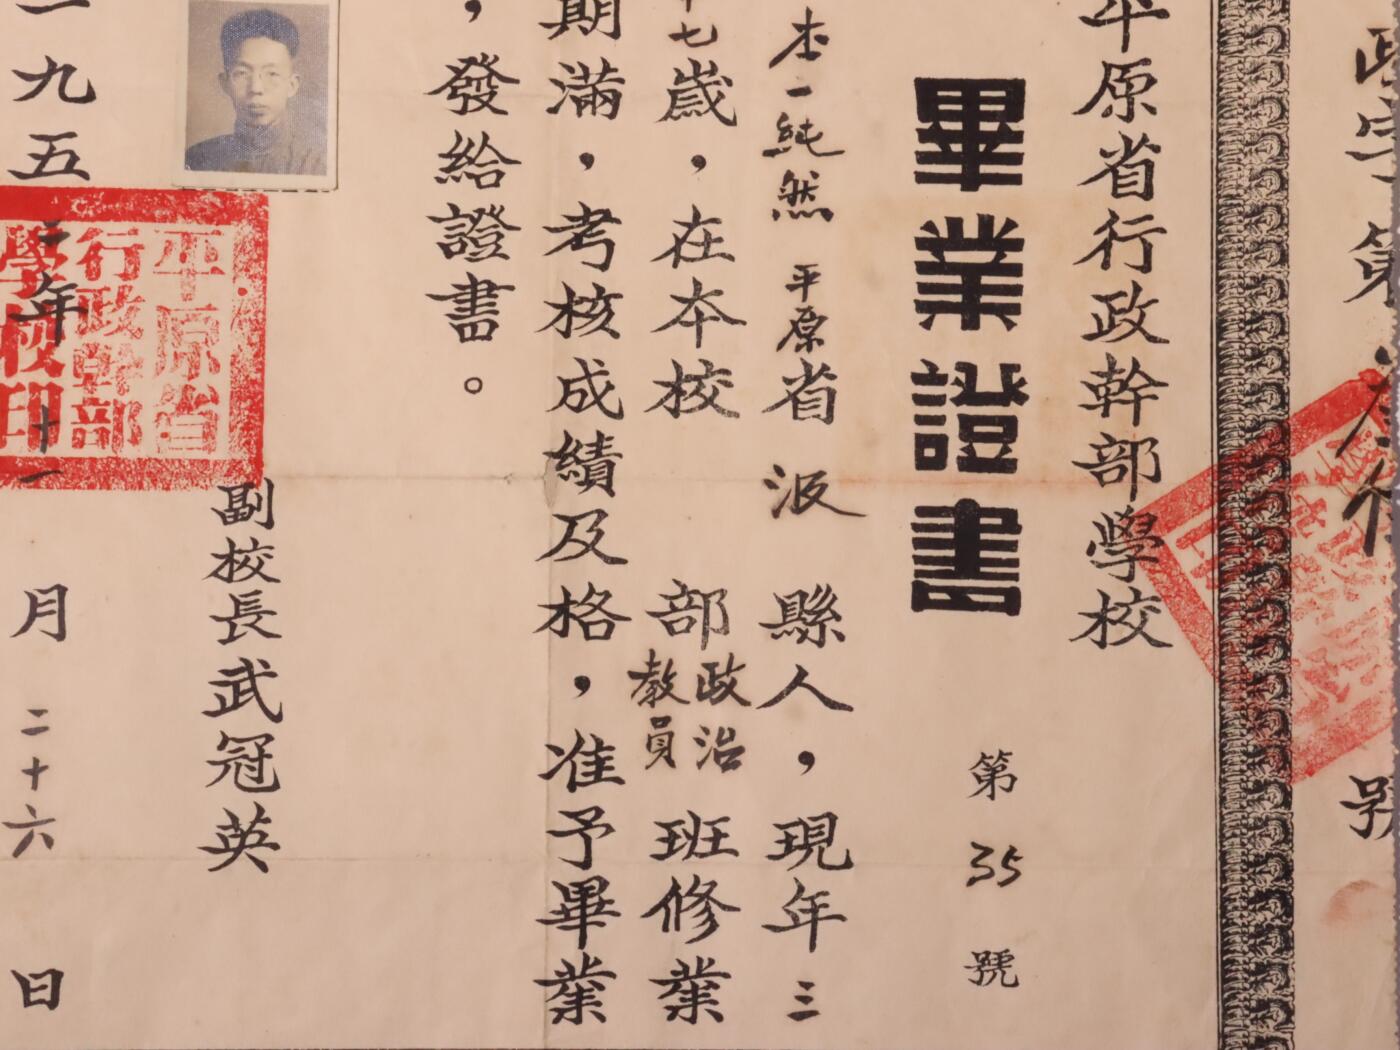 政字第
號
平原省行政幹部學校
畢業證書
第35號
純然 平原省汲縣人，現年三
十七歲，在本校 部政治教員班修業
期滿，考核成績及格，准予畢業
，發給證書。
副校長武冠英
一九五二年十一月二十六日
平原省
行政幹部
學校印